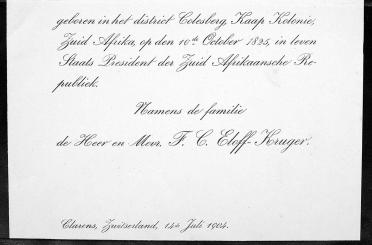 geboren in het district Colesberg, Kaap Kolonie,
Zuid Afrika, op den 10de October 1825, in leven
Staats President der Zuid Afrikaansche Re-
publiek.
Namens de familie
de Heer en Mevr. F. C. Eloff-Kruger.
Clarens, Zwitserland, 14de Juli 1904.